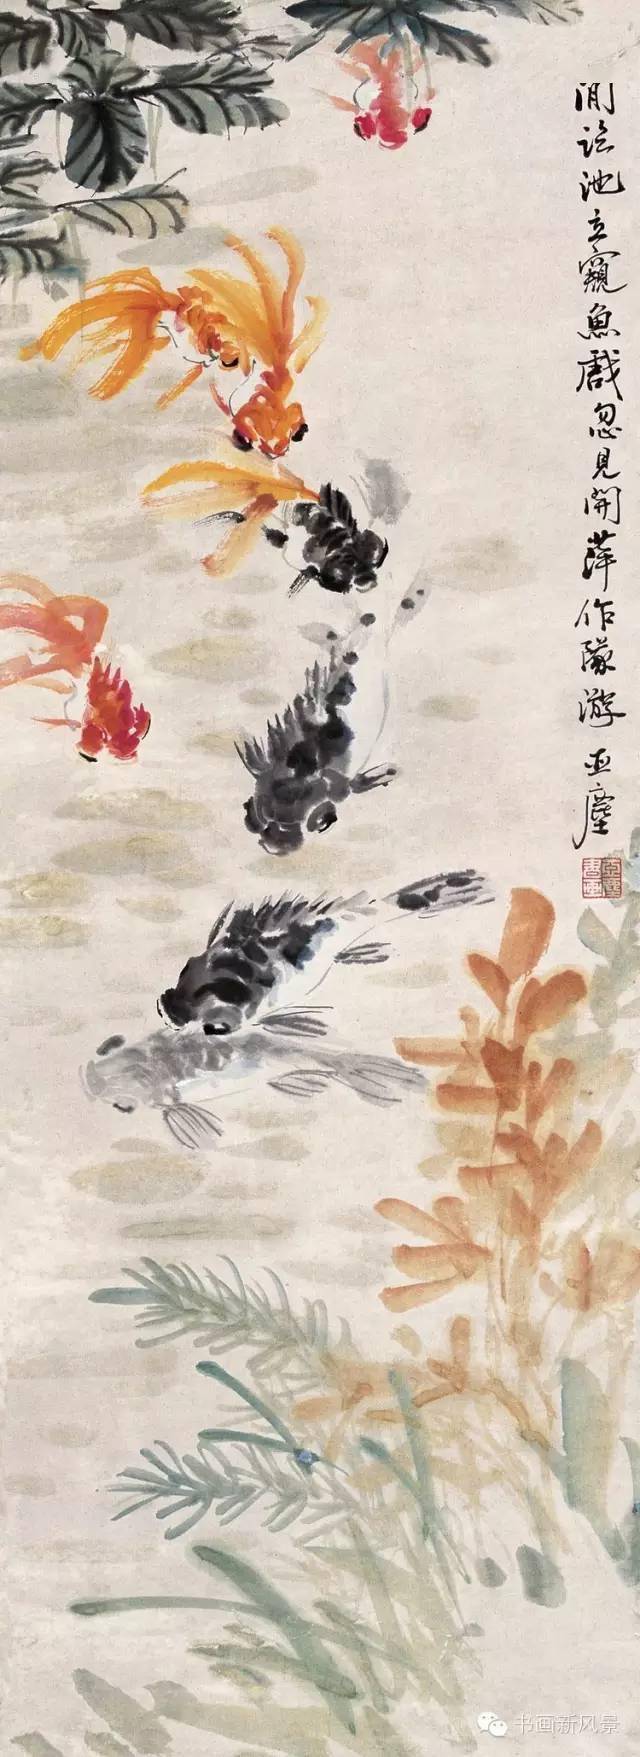 閒臨池立窺魚戲忽見開萍作隊游 亞塵
亞塵書畫
书画新风景